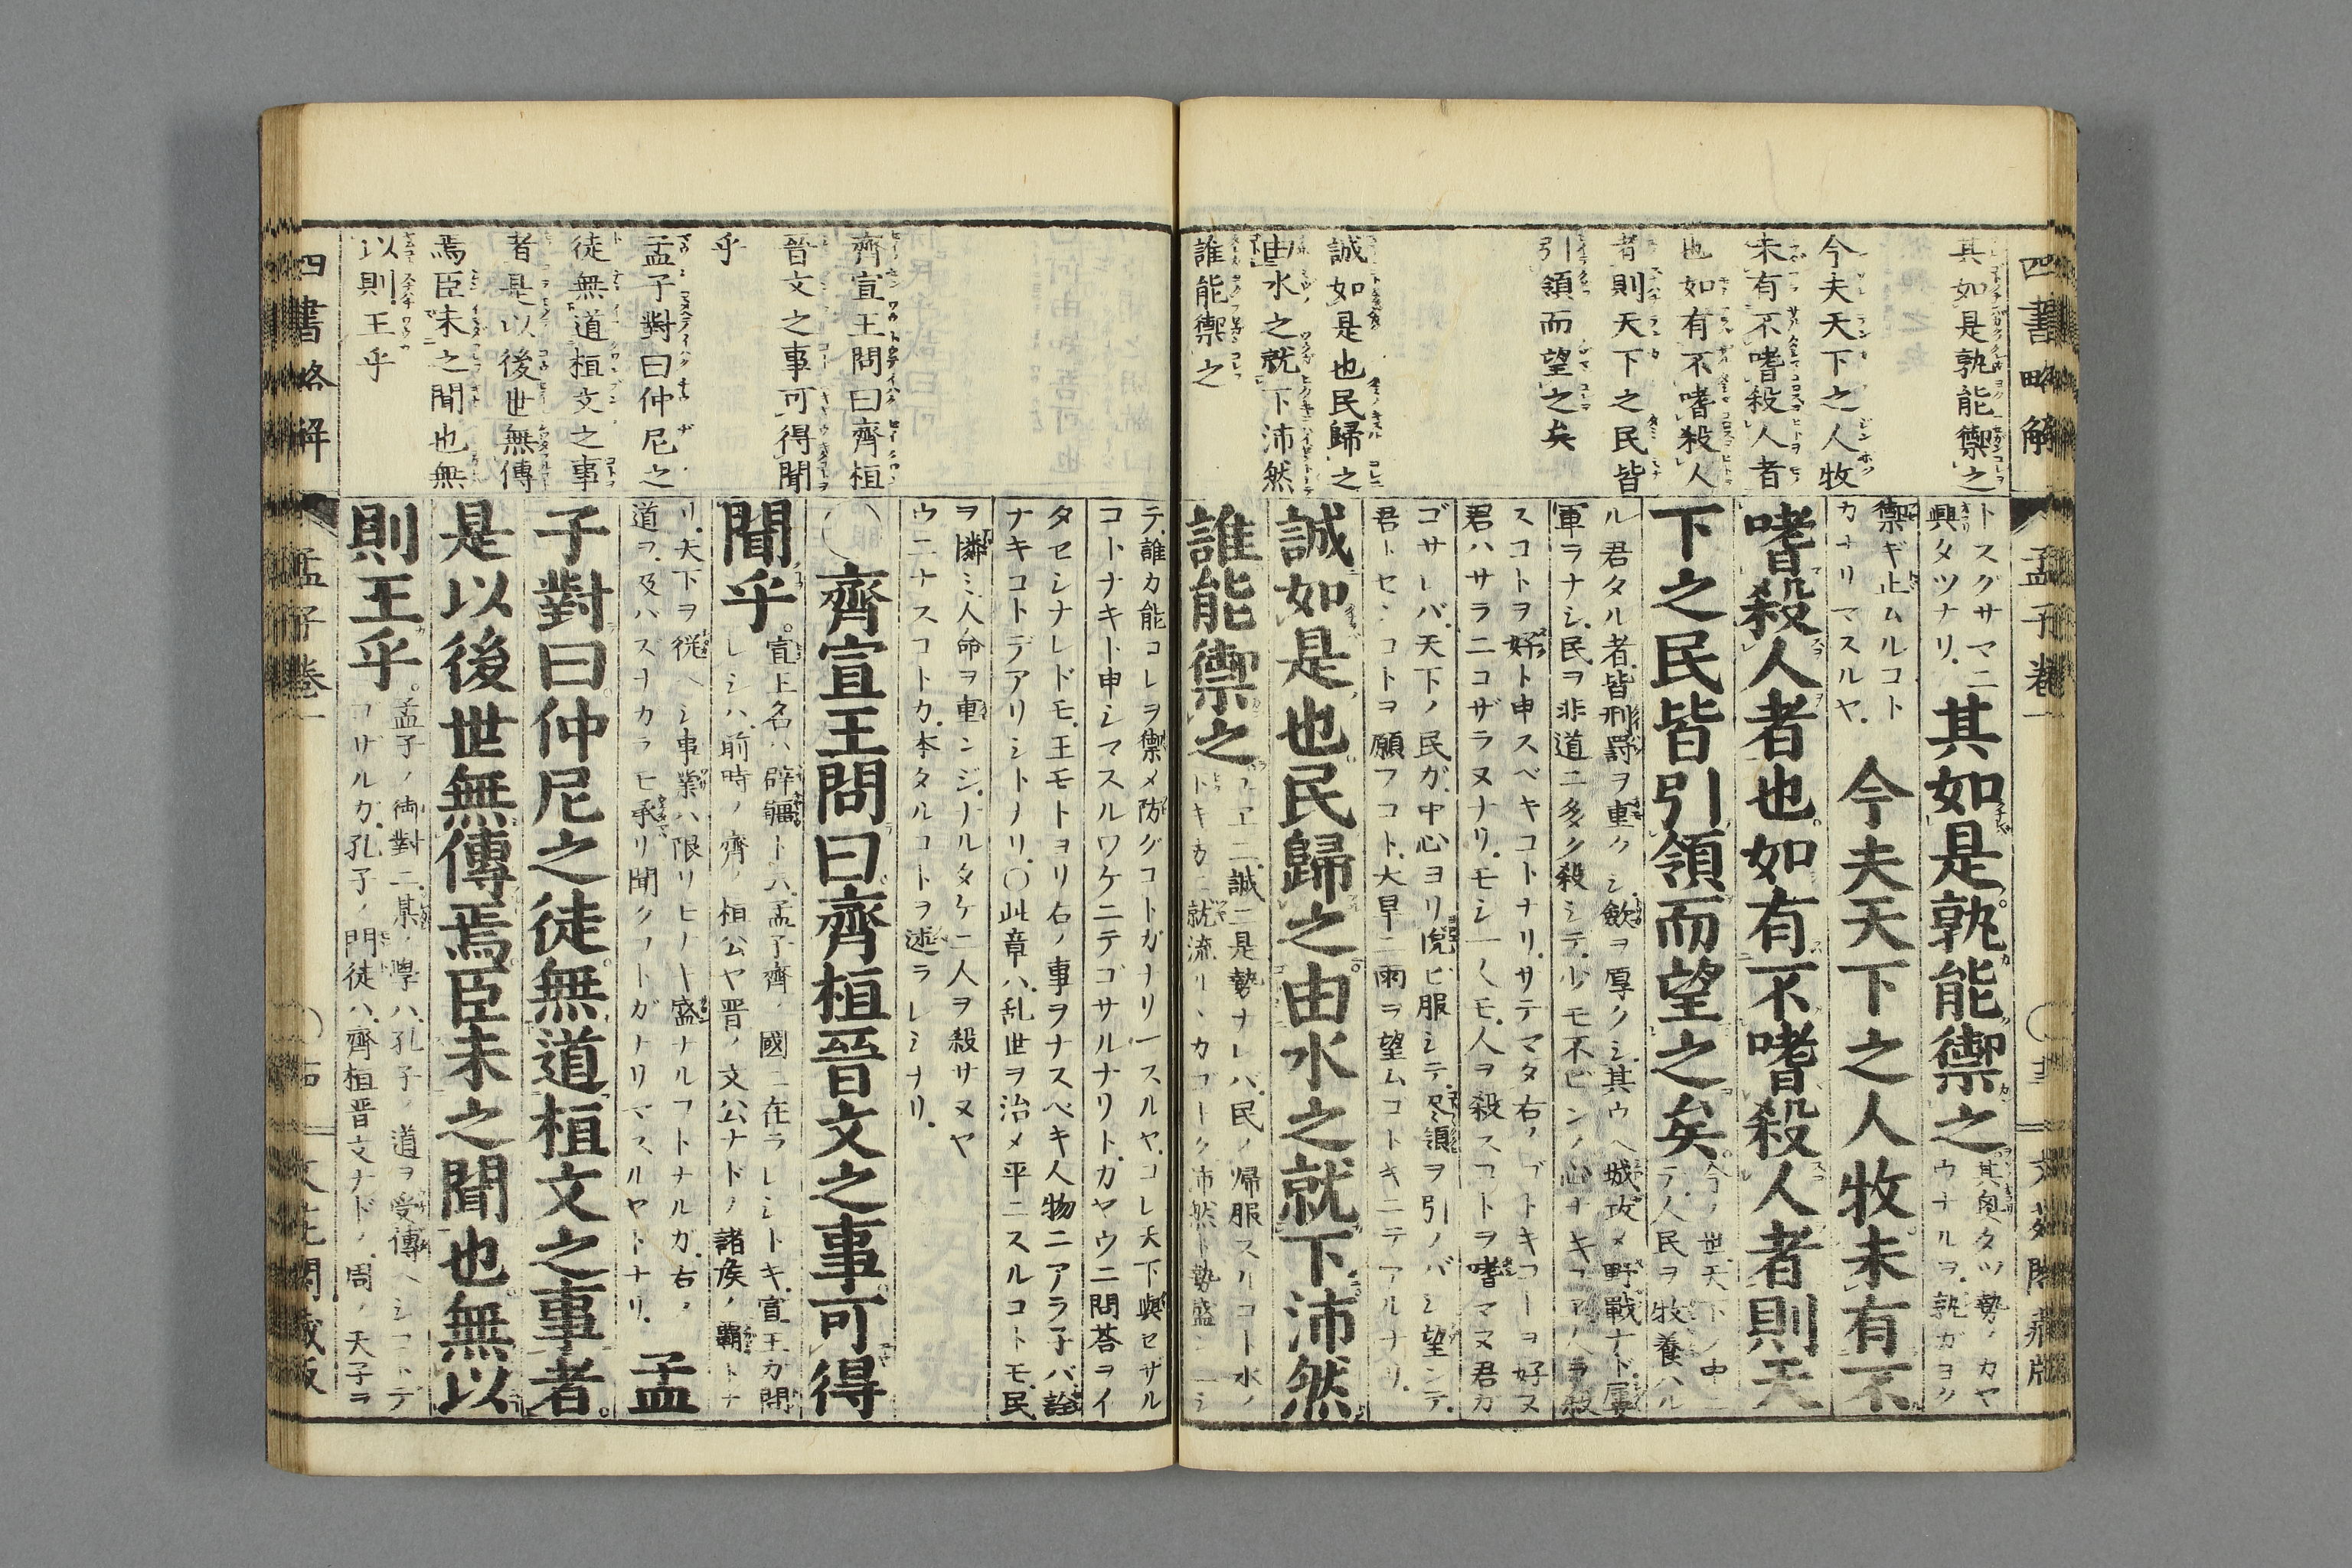 四書略解
孟子巻一
其如是孰能禦之
今夫天下之人牧
未有不嗜殺人者
也如有不嗜殺人
者則天下之民皆
引領而望之矣
誠如是也民歸之
由水之就下沛然
誰能禦之
トスグサマニ
興タツナリ
其如是孰能禦之
其興タツ勢ノカヤ
ウナルヲ孰ガヨク
禦ギ止ムルコト
カナリマスルヤ
今夫天下之人牧未有不
嗜殺人者也如有不嗜殺人者則天
下之民皆引領而望之矣
今ノ世天下ノ中ニ
テ人民ヲ牧養ハル
ル君タル者皆刑罰ヲ重クシ歛ヲ厚クシ其ウヘ城攻メ野戰ナド屢
軍ヲナシ民ヲ非道ニ多ク殺シテ少モ不ビンノ心ナキ
スコトヲ好ト申スベキコトナリサテマタ右ノゴトキ
君ハサラニコザラヌナリモシ一人モ人ヲ殺スコトヲ嗜マヌ君ガ
ゴサレバ天下ノ民ガ中心ヨリ悅ビ服シテ尽領ヲ引ノバシ望ンテ
君トセンコトヲ願フコト大旱ニ雨ヲ望ムコトキニテアルナリ
誠如是也民歸之由水之就下沛然
誰能禦之
誠ニ是勢ナレバ民ノ帰服スルコト水ノ
テ誰カ能コレヲ禦メ防グコトガナリ
スルヤコレ天下與セザル
コトナキト申シマスルワケニテゴサルナリトカヤウニ問荅ヲイ
タセシナレドモ王モトヨリ右ノ事ヲナスベキ人物ニアラ子バ詮
ナキコトデアリシトナリ〇此章ハ乱世ヲ治メ平ニスルコトモ民
ヲ憐ミ人命ヲ重ンジナルタケニ人ヲ殺サヌヤ
ウニナスコトカ本タルコトヲ述ラレシナリ
齊宣王問曰齊桓
晉文之事可得聞
乎
孟子對曰仲尼之
徒無道桓文之事
者是以後世無傳
焉臣未之聞也無
以則王乎
〇齊宣王問曰齊桓晉文之事可得
聞乎
宣王名ハ辟疆ト云孟子齊ノ國ニ在ラレシトキ宣王カ問
レシハ前時ノ齊ノ桓公ヤ晋ノ文公ナドノ諸矦ノ覇トナ
リ天下ヲ從ヘシ事業ハ限リモノキ盛ナルコトナルガ右ノ
道ヲ及バスナカラモ承リ聞クコトガナリマスルヤトナリ
孟
子對曰仲尼之徒無道桓文之事者
是以後世無傳焉臣未之聞也無以
則王乎
孟子ノ御對ニ某ノ學ハ孔子ノ道ヲ受傳ヘシコトデ
コザルカ孔子ノ門徒ハ齊桓晋文ナドノ周ノ天子ヲ
四書略解
孟子巻一